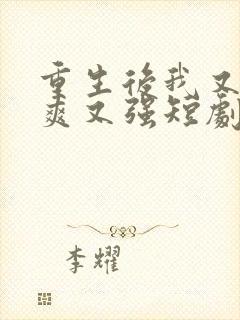 重生後我又
爽又強短劇
李耀